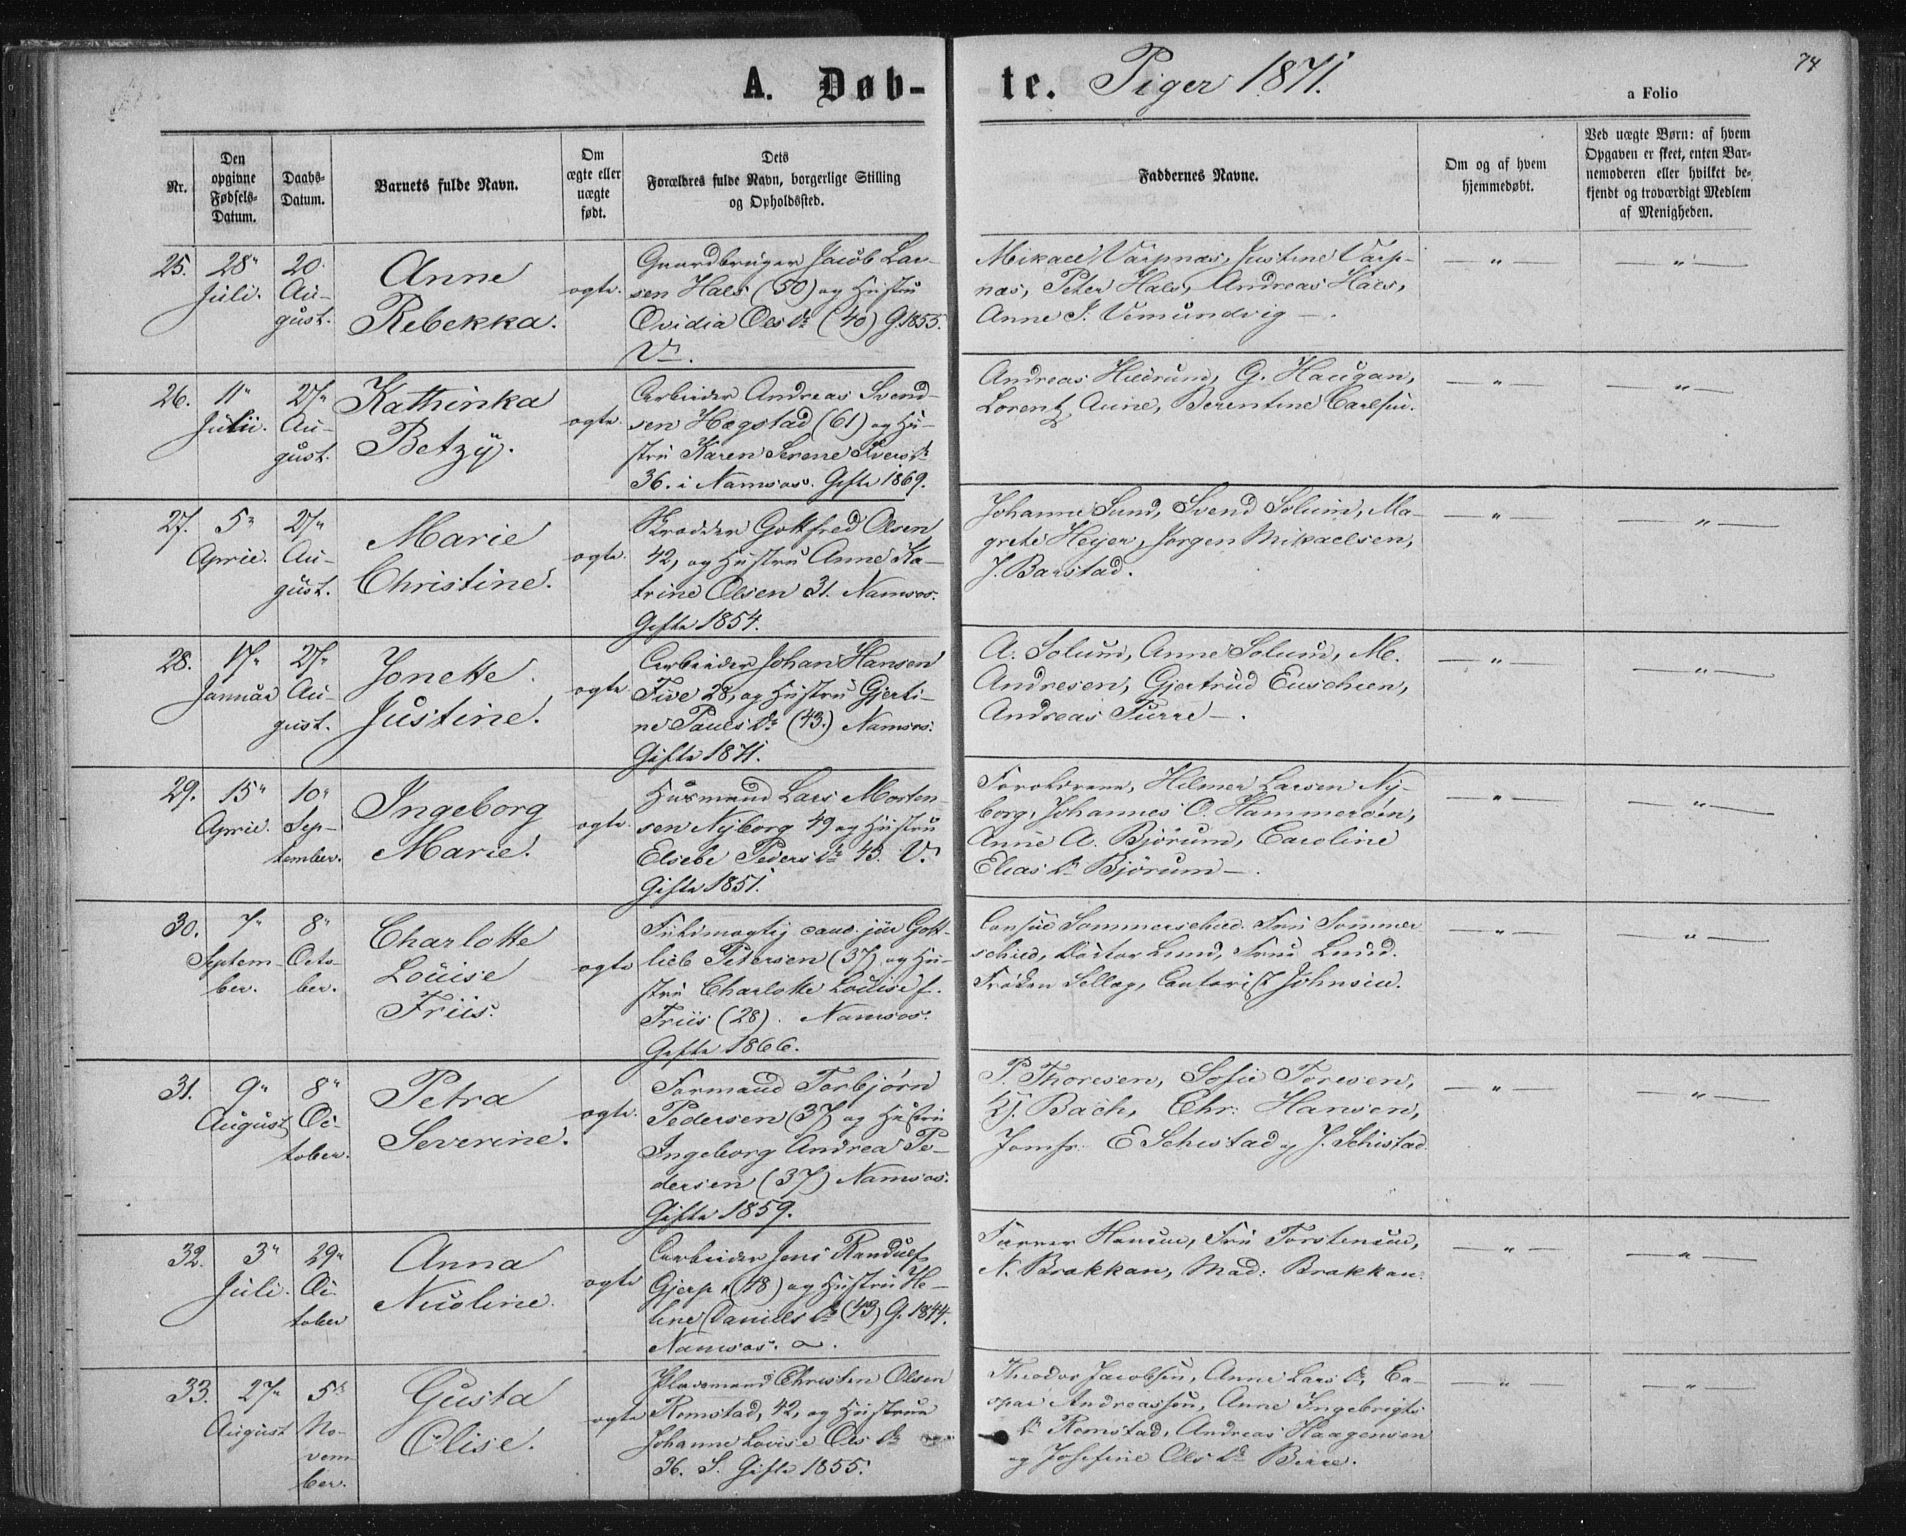 A. Døb-
te. Piger 1871.
74
a Folio
Nr.
Den opgivne Fødsels-Datum.
Daabs-Datum.
Barnets fulde Navn.
Om ægte eller uægte født.
Dets Forældres fulde Navn, borgerlige Stilling og Opholdssted.
Faddernes Navne.
Om og af hvem hjemmedøbt.
Ved uægte Børn: af hvem Opgaven er skeet, enten Barnemoderen eller hvilket bekjendt og troværdigt Medlem af Menigheden.
25. 28" Juli. 20. August.
Anne
Rebekka.
ægte.
Gaardbruger Jacob Lar-
sen Hals (50) og Hustru
Ovidia Olsdr (40) G. 1855.
V.
Mikael Varpnæs, Justine Varp-
næs, Peter Hals, Andreas Hals,
Anne J. Vemundvig — .
— " — — " —
26. 11" Julii. 27" August.
Kathinka
Betzy.
ægte.
Arbeider Andreas Svend-
sen Hægstad (61) og Hu-
stru Karen Serene Iversdr
36. i Namsos. Gifte 1869.
Andreas Hildrum, G. Haugan,
Lorentz Aune, Berentine Carlsen.
— " — — " —
27. 5" April. 27" August.
Marie
Christine.
ægte.
Skrædder Gottfred Olsen
42, og Hustru Anne Ka-
trine Olsen 31. Namsos.
Gifte 1854.
Johanne Lund, Svend Solum, Ma-
grete Heyer, Jørgen Mikaelsen,
J. Barstad.
— " — — " —
28. 17" Januar 27" August.
Jonette
Justine.
ægte.
Arbeider Johan Hansen
Five 28, og Hustru Gjerti-
ne Paulsdr (43.) Namsos.
Gifte 1871.
A. Solum, Anne Solum, M.
Andresen, Gjertrud
Andreas Furre — .
— " — — " —
29. 15" April. 10" September.
Ingeborg
Marie.
ægte.
Husmand Lars Morten-
sen Nyborg 49 og Hustru
Elsebe Pedersdr 45. V.
Gifte 1851.
Forældrene, Hilmer Larsen Ny-
borg, Johannes O. Hammerøen,
Anne A. Bjørum, Caroline
Eliasdr Bjørum — .
— " — — " —
30. 7" September. 8" October.
Charlotte
Louise
Friis.
ægte
Fuldmægtig cand. jur Gott-
lieb Petersen (37) og Hu-
stru Charlotte Louise f.
Friis (28). Namsos.
Gifte 1866.
Consul Sommerschield. Fru Sommer
schield, Doctor Lund, Frue Lund.
Frøken Sellæg, Contorist Johnsen.
— " — — " —
31. 9" August 8" October.
Petra
Severine.
ægte.
Formand Torbjørn
Pedersen (37) og Hustru
Ingeborg Andrea Pe-
dersen (37) Namsos.
Gifte 1859.
P. Thoresen, Sofie Toresen,
Bach, Chr: Hansen,
Jomfr: E Schistad og J. Schistad.
— " — — " —
32. 3" Juli. 29" October
Anna
Nicoline.
ægte
Arbeider Jens Randulf
Gjerp, (48) og Hustru He-
line Danielsdr (43) G. 1844.
Namsos.
Farver Hansen, Fru Torstensen,
N. Brakkan, Mad: Brakkan.
— " — — " —
33. 27" August 5te November.
Gusta
Olise.
ægte
Pladsmand Christen Olsen
Romstad, 42, og Hustrue
Johanne Lovise Olsdr
36. S. Gifte 1855.
Theodor Jacobsen, Anne Larsdr, Ca-
spar Andreassen, Anne Ingebrigts
dr Romstad, Andreas Haagensen
og Josefine Olsdr Birre.
— " — — " —